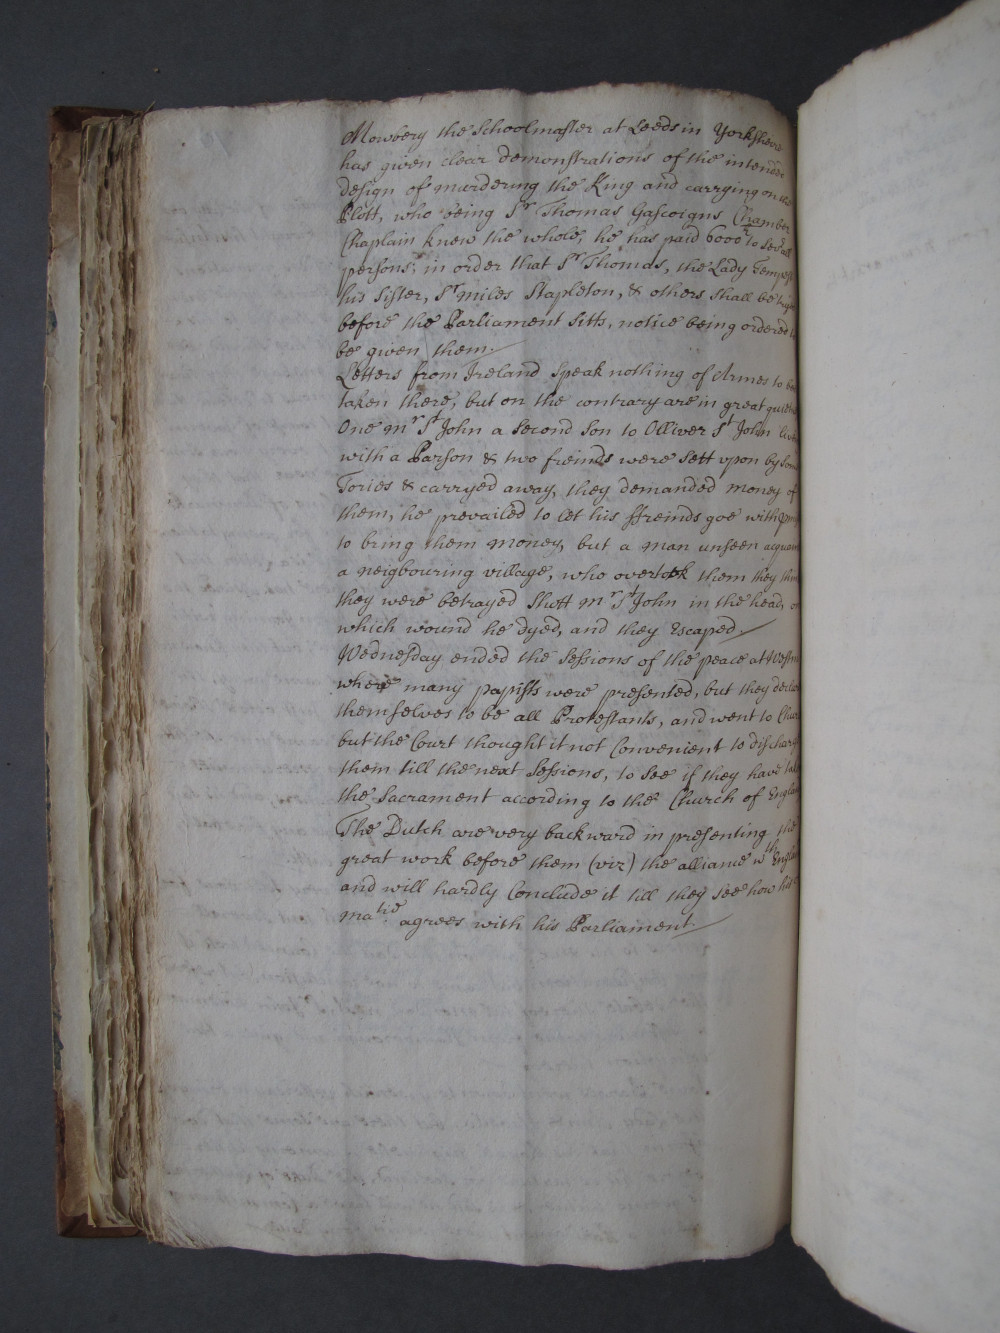 Mowbery the Schoolmaster at Leeds in Yorkshire
has given clear demonstrations of the intended
design of murdering the King and carrying on the
Plott, who being Sr Thomas Gascoigns Chamber
Chaplain knew the whole, he has paid 6000 to severall
persons; in order that Sr Thomas, the Lady Tempest
his Sister, Sr miles Stapleton, & others shall be tryed
before the Parliament sitts, notice being ordered to
be given them.
Letters from Ireland speak nothing of Armes to be
taken there, but on the contrary are in great quiet
One mr St John a Second Son to Olliver St John
with a Parson & two freinds were Sett vpon by Some
Tories & carryed away, they demanded money of
them, he prevailed to let his ffreinds goe with
to bring them money, but a man unseen
a neigbouring village, who overtook them they
they were betrayed Shott mr St John in the head, of
which wound he dyed, and they Escaped.
Wednesday ended the Sessions of the peace at
where many papists were presented, but they
themselves to be all Protestants, and went to Church
but the Court thought it not Convenient to discharge
them till the next Sessions, to See if they have
the Sacrament according to the Church of England
The Dutch are very backward in presenting the
great work before them (viz) the alliance wth England
and will hardly Conclude it till they See how his
matie agrees with his Parliament